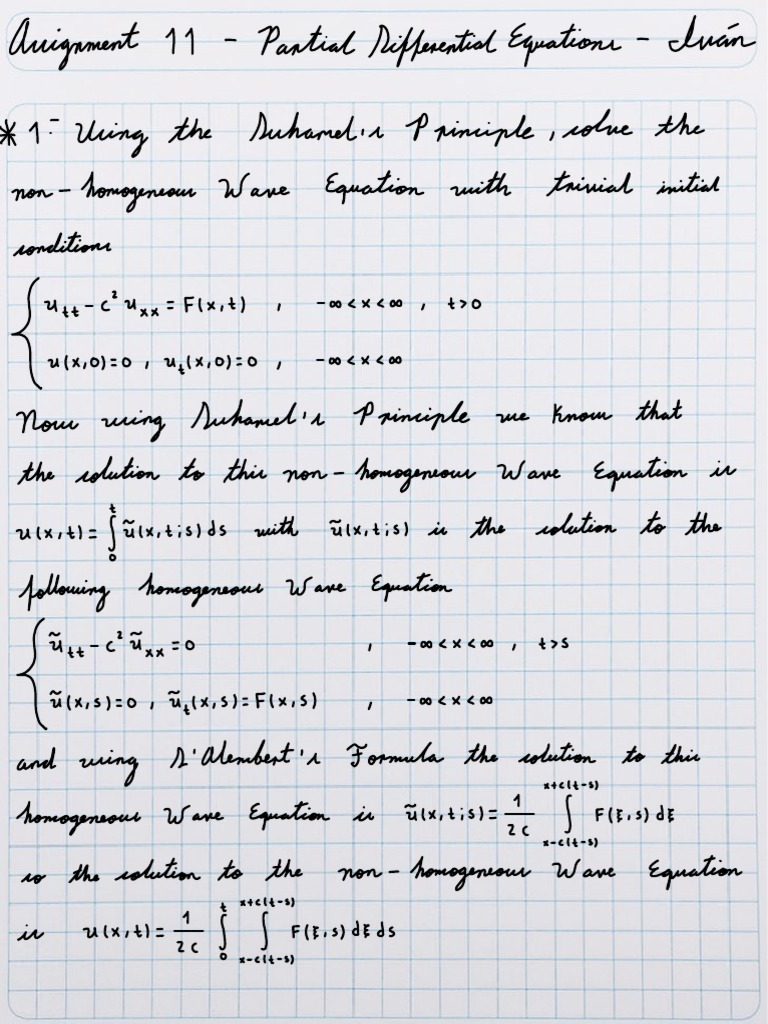 Assignment 11 - Partial Differential Equations - Iván
* 1- Using the Duhamel's Principle, solve the
non-homogeneous Wave Equation with trivial initial
conditions
{ u_tt - c² u_xx = F(x,t) , -∞ < x < ∞ , t>0
u(x,0)=0 , u_t(x,0)=0 , -∞ < x < ∞
Now using Duhamel's Principle we know that
the solution to this non-homogeneous Wave Equation is
u(x,t) = ∫_0^t ũ(x,t;s) ds with ũ(x,t;s) is the solution to the
following homogeneous Wave Equation
{ ũ_tt - c² ũ_xx = 0 , -∞ < x < ∞ , t>s
ũ(x,s)=0 , ũ_t(x,s)=F(x,s) , -∞ < x < ∞
and using D'Alembert's Formula the solution to this
homogeneous Wave Equation is ũ(x,t;s) = 1/2c ∫_{x-c(t-s)}^{x+c(t-s)} F(ξ,s) dξ
so the solution to the non-homogeneous Wave Equation
is u(x,t) = 1/2c ∫_0^t ∫_{x-c(t-s)}^{x+c(t-s)} F(ξ,s) dξ ds